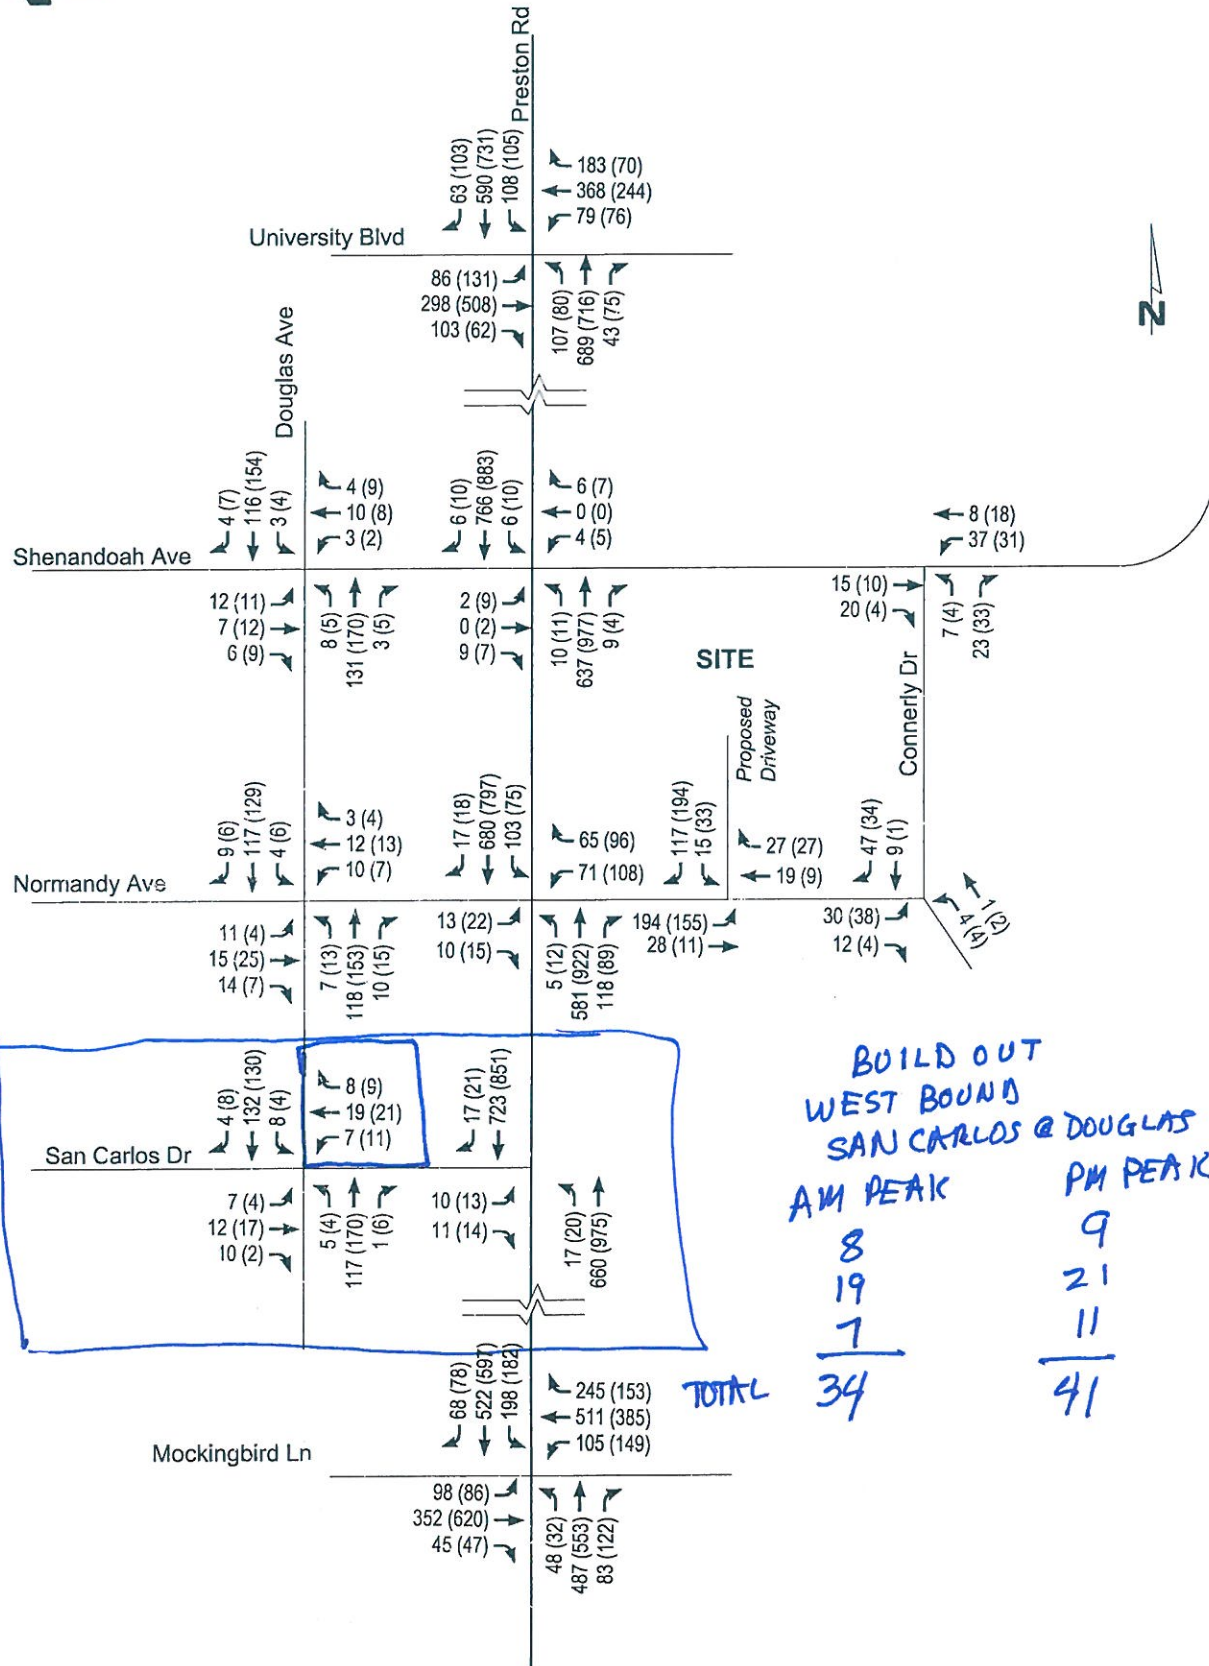 Preston Rd
63 (103)
590 (731)
108 (105)
183 (70)
368 (244)
79 (76)
University Blvd
86 (131)
298 (508)
103 (62)
107 (80)
689 (716)
43 (75)
N
Douglas Ave
4 (7)
116 (154)
3 (4)
4 (9)
10 (8)
3 (2)
6 (10)
766 (883)
6 (10)
6 (7)
0 (0)
4 (5)
8 (18)
37 (31)
Shenandoah Ave
12 (11)
7 (12)
6 (9)
8 (5)
131 (170)
3 (5)
2 (9)
0 (2)
9 (7)
10 (11)
637 (977)
9 (4)
15 (10)
20 (4)
7 (4)
23 (33)
SITE
Proposed
Driveway
Connerly Dr
9 (6)
117 (129)
4 (6)
3 (4)
12 (13)
10 (7)
17 (18)
680 (797)
103 (75)
65 (96)
71 (108)
117 (194)
15 (33)
27 (27)
19 (9)
47 (34)
9 (1)
Normandy Ave
11 (4)
15 (25)
14 (7)
7 (13)
118 (153)
10 (15)
13 (22)
10 (15)
5 (12)
581 (922)
118 (89)
194 (155)
28 (11)
30 (38)
12 (4)
4 (4)
1 (2)
4 (8)
132 (130)
8 (4)
8 (9)
19 (21)
7 (11)
17 (21)
723 (851)
San Carlos Dr
7 (4)
12 (17)
10 (2)
5 (4)
117 (170)
1 (6)
10 (13)
11 (14)
17 (20)
660 (975)
BUILD OUT
WEST BOUND
SAN CARLOS @ DOUGLAS
AM PEAK PM PEAK
8 9
19 21
7 11
TOTAL 34 41
68 (78)
522 (597)
198 (182)
245 (153)
511 (385)
105 (149)
Mockingbird Ln
98 (86)
352 (620)
45 (47)
48 (32)
487 (553)
83 (122)